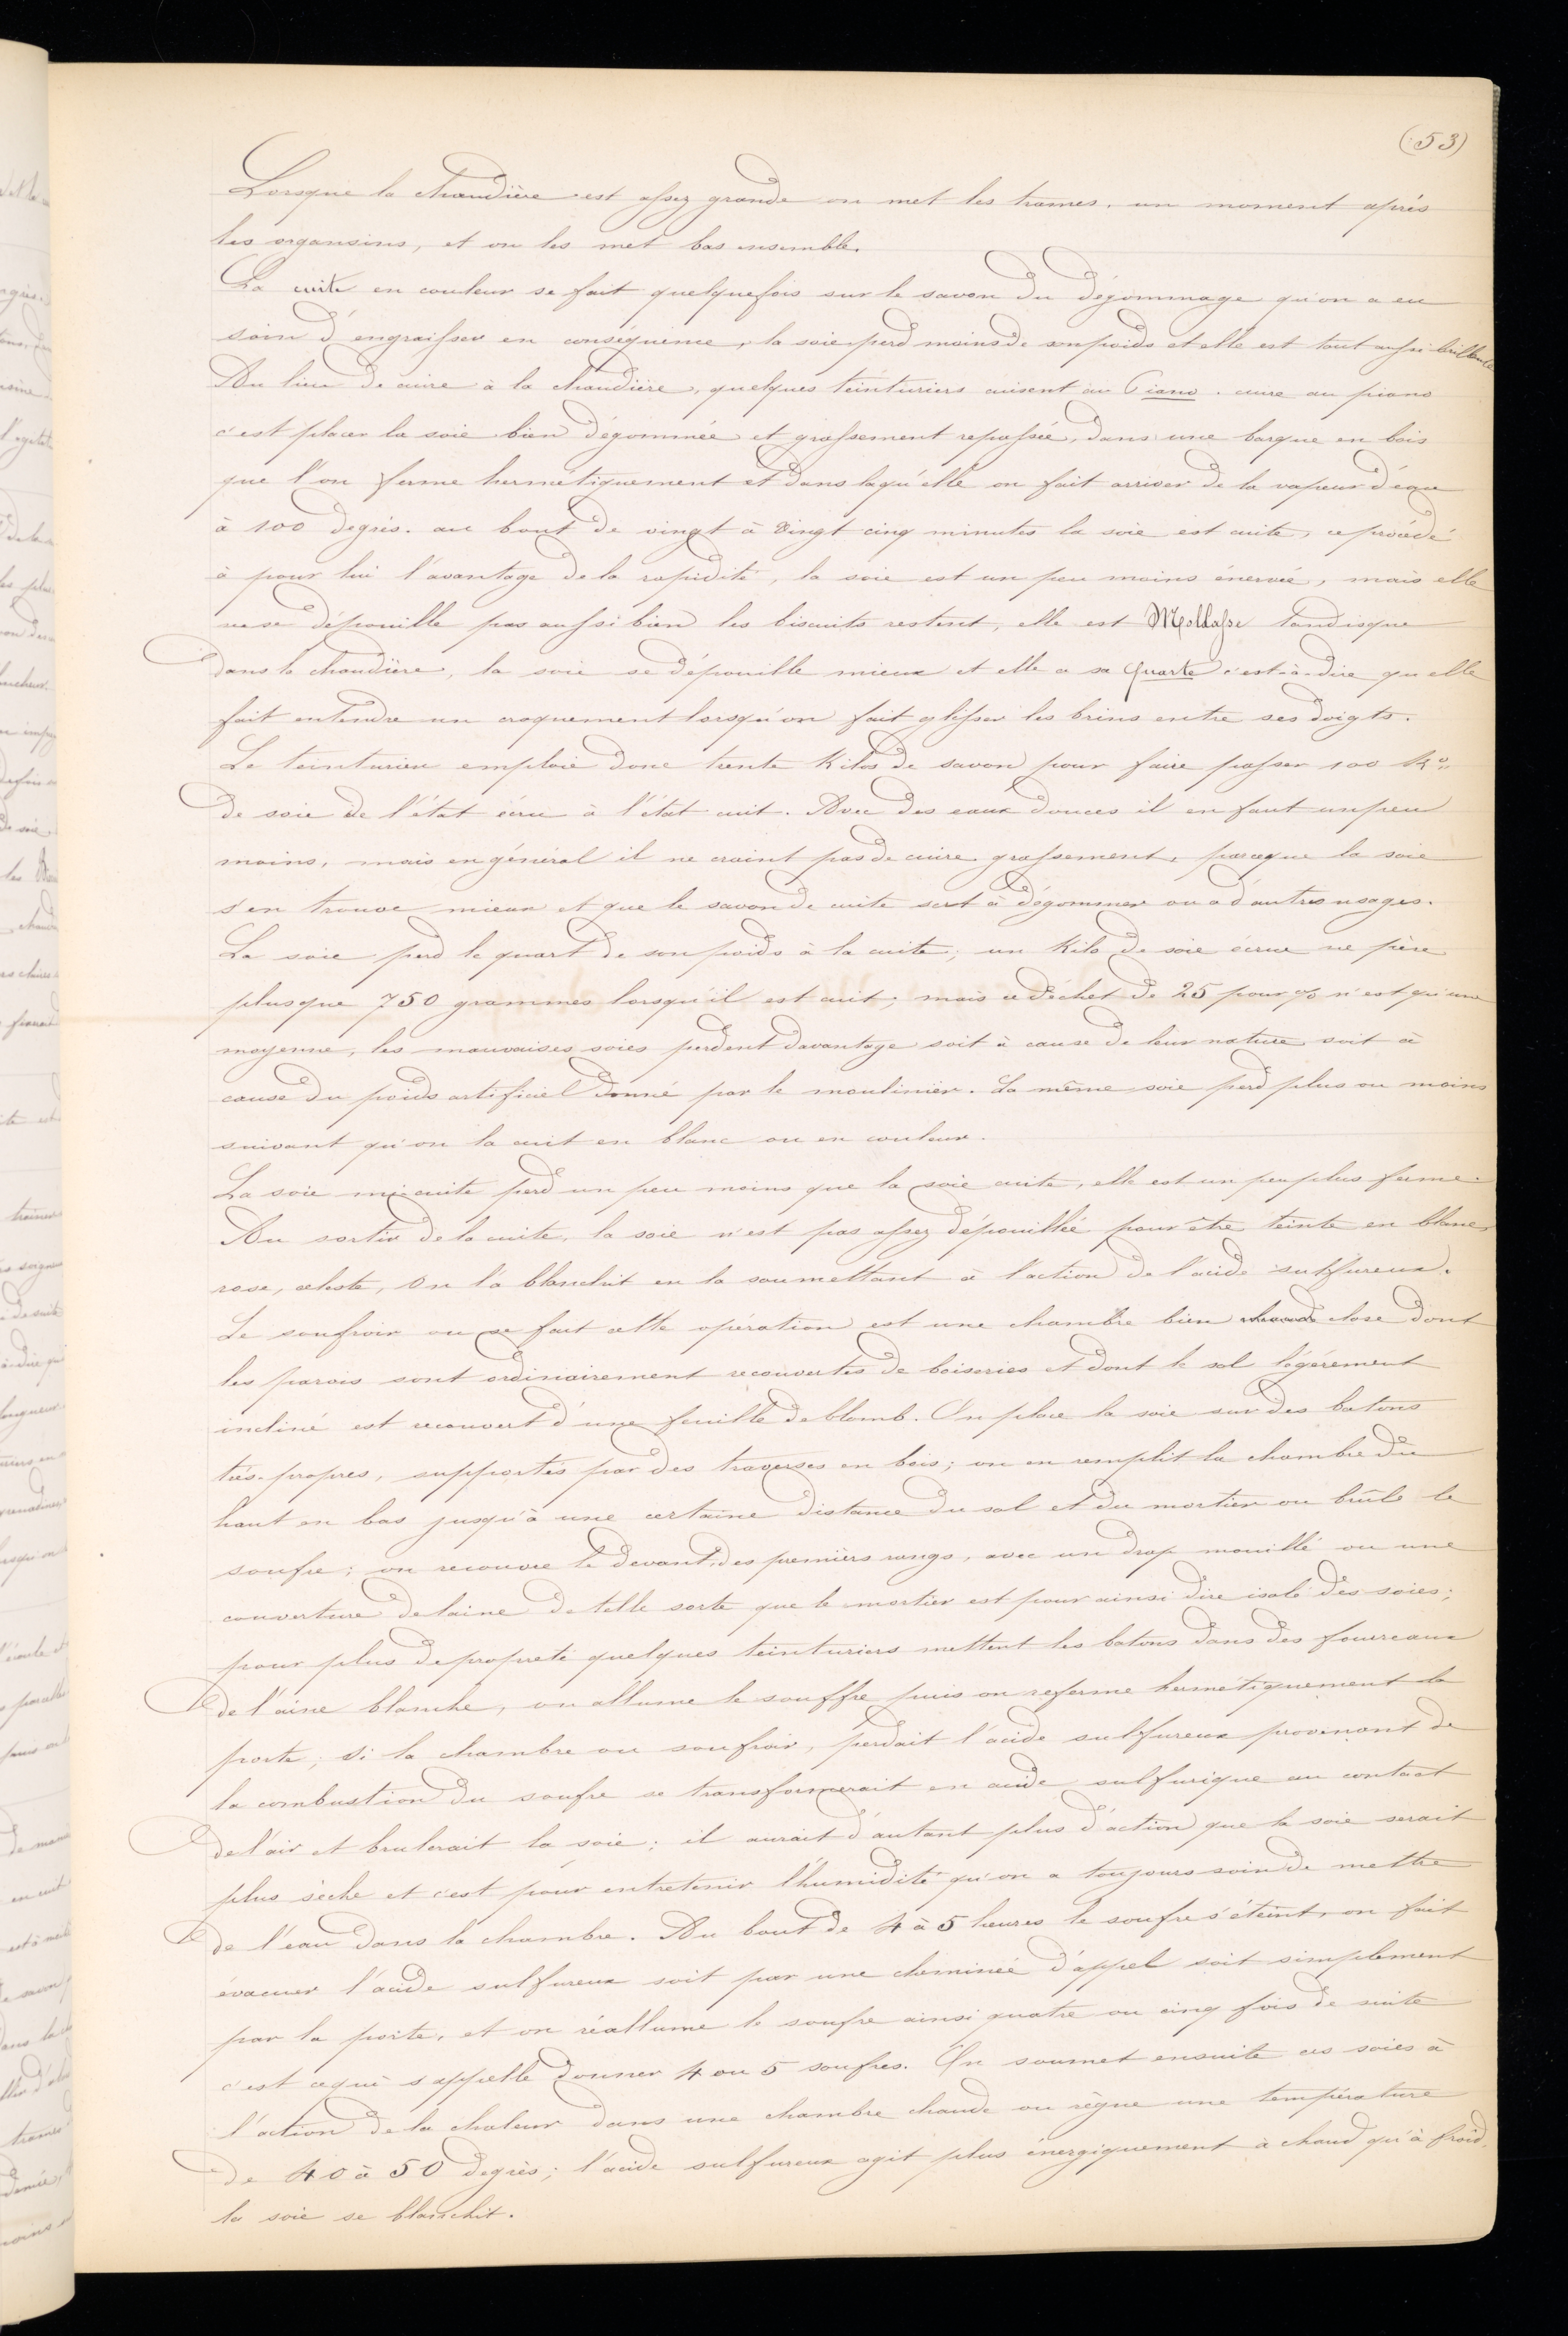 (53)
Lorsque la chaudière est assez grande on met les trames, un moment après
les organsins, et on les met bas ensemble.
La cuite en couleur se fait quelquefois sur le savon du dégommage qu'on a eu
soin d'engraisser en conséquence, la soie perd moins de son poids et elle est tout aussi brillante
Au lieu de cuire à la chaudière, quelques teinturiers cuisent au Piano. cuire au piano
c'est placer la soie bien dégommée et grassement repassée, dans une barque en bois
que l'on ferme hermétiquement et dans laqu'elle on fait arriver de la vapeur d'eau
à 100 degrés. au bout de vingt à vingt cinq minutes la soie est cuite, ce procédé
à pour lui l'avantage de la rapidité, la soie est un peu moins énervée, mais elle
ne se dépouille pas aussi bien les biscuits restent, elle est Mollasse tandisque
dans la chaudière, la soie se dépouille mieux et elle a sa Quarte c'est-à-dire qu'elle
fait entendre un craquement lorsqu'on fait glisser les brins entre ses doigts.
Le teinturier emploie donc trente Kilos de savon pour faire passer 100 Kos
de soie de l'état écru à l'état cuit. Avec des eaux douces il en faut un peu
moins, mais en général il ne craint pas de cuire grassement, parceque la soie
s'en trouve mieux et que le savon de cuite sert à dégommer ou à d'autres usages.
La soie perd le quart de son poids à la cuite; un Kilo de soie écrue ne pèse
plusque 750 grammes lorsqu'il est cuit; mais ce déchet de 25 pour % n'est qu'une
moyenne, les mauvaises soies perdent davantage soit à cause de leur nature soit à
cause du poids artificiel donné par le moulinier. La même soie perd plus ou moins
suivant qu'on la cuit en blanc ou en couleur.
La soie mi-cuite perd un peu moins que la soie cuite, elle est un peu plus ferme.
Au sortir de la cuite, la soie n'est pas assez dépouillée pour être teinte en blanc,
rose, céleste, on la blanchit en la soumettant à l'action de l'acide sulfureux.
Le soufroir ou se fait cette opération est une chambre bien chaude close dont
les parois sont ordinairement recouvertes de boiseries et dont le sol légérement
incliné est recouvert d'une feuille de blomb. On place la soie sur des batons
très-propres, supportés par des traverses en bois; on en remplit la chambre du
haut en bas jusqu'à une certaine distance du sol et du mortier ou brûle le
soufre; on recouvre le devant des premiers rangs, avec un drap mouillé ou une
couverture de laine de telle sorte que le mortier est pour ainsi dire isolé des soies;
pour plus de propreté quelques teinturiers mettent les batons dans des fourreaux
de l'aine blanche, on allume le souffre puis on referme hermétiquement la
porte; si la chambre ou soufroir, perdait l'acide sulfureux provenant de
la combustion du soufre se transformerait en acide sulfurique au contact
de l'air et brulerait la soie; il aurait d'autant plus d'action que la soie serait
plus sèche et c'est pour entretenir l'humidité qu'on a toujours soin de mettre
de l'eau dans la chambre. Au bout de 4 à 5 heures le soufre s'éteint, on fait
évacuer l'acide sulfureux soit par une cheminée d'appel soit simplement
par la porte, et on réallume le soufre ainsi quatre ou cinq fois de suite
c'est cequi s'appelle donner 4 ou 5 soufres. On soumet ensuite ces soies à
l'action de la chaleur dans une chambre chaude ou règne une température
de 40 à 50 degrès; l'acide sulfureux agit plus énergiquement à chaud qu'à froid,
la soie se blanchit.